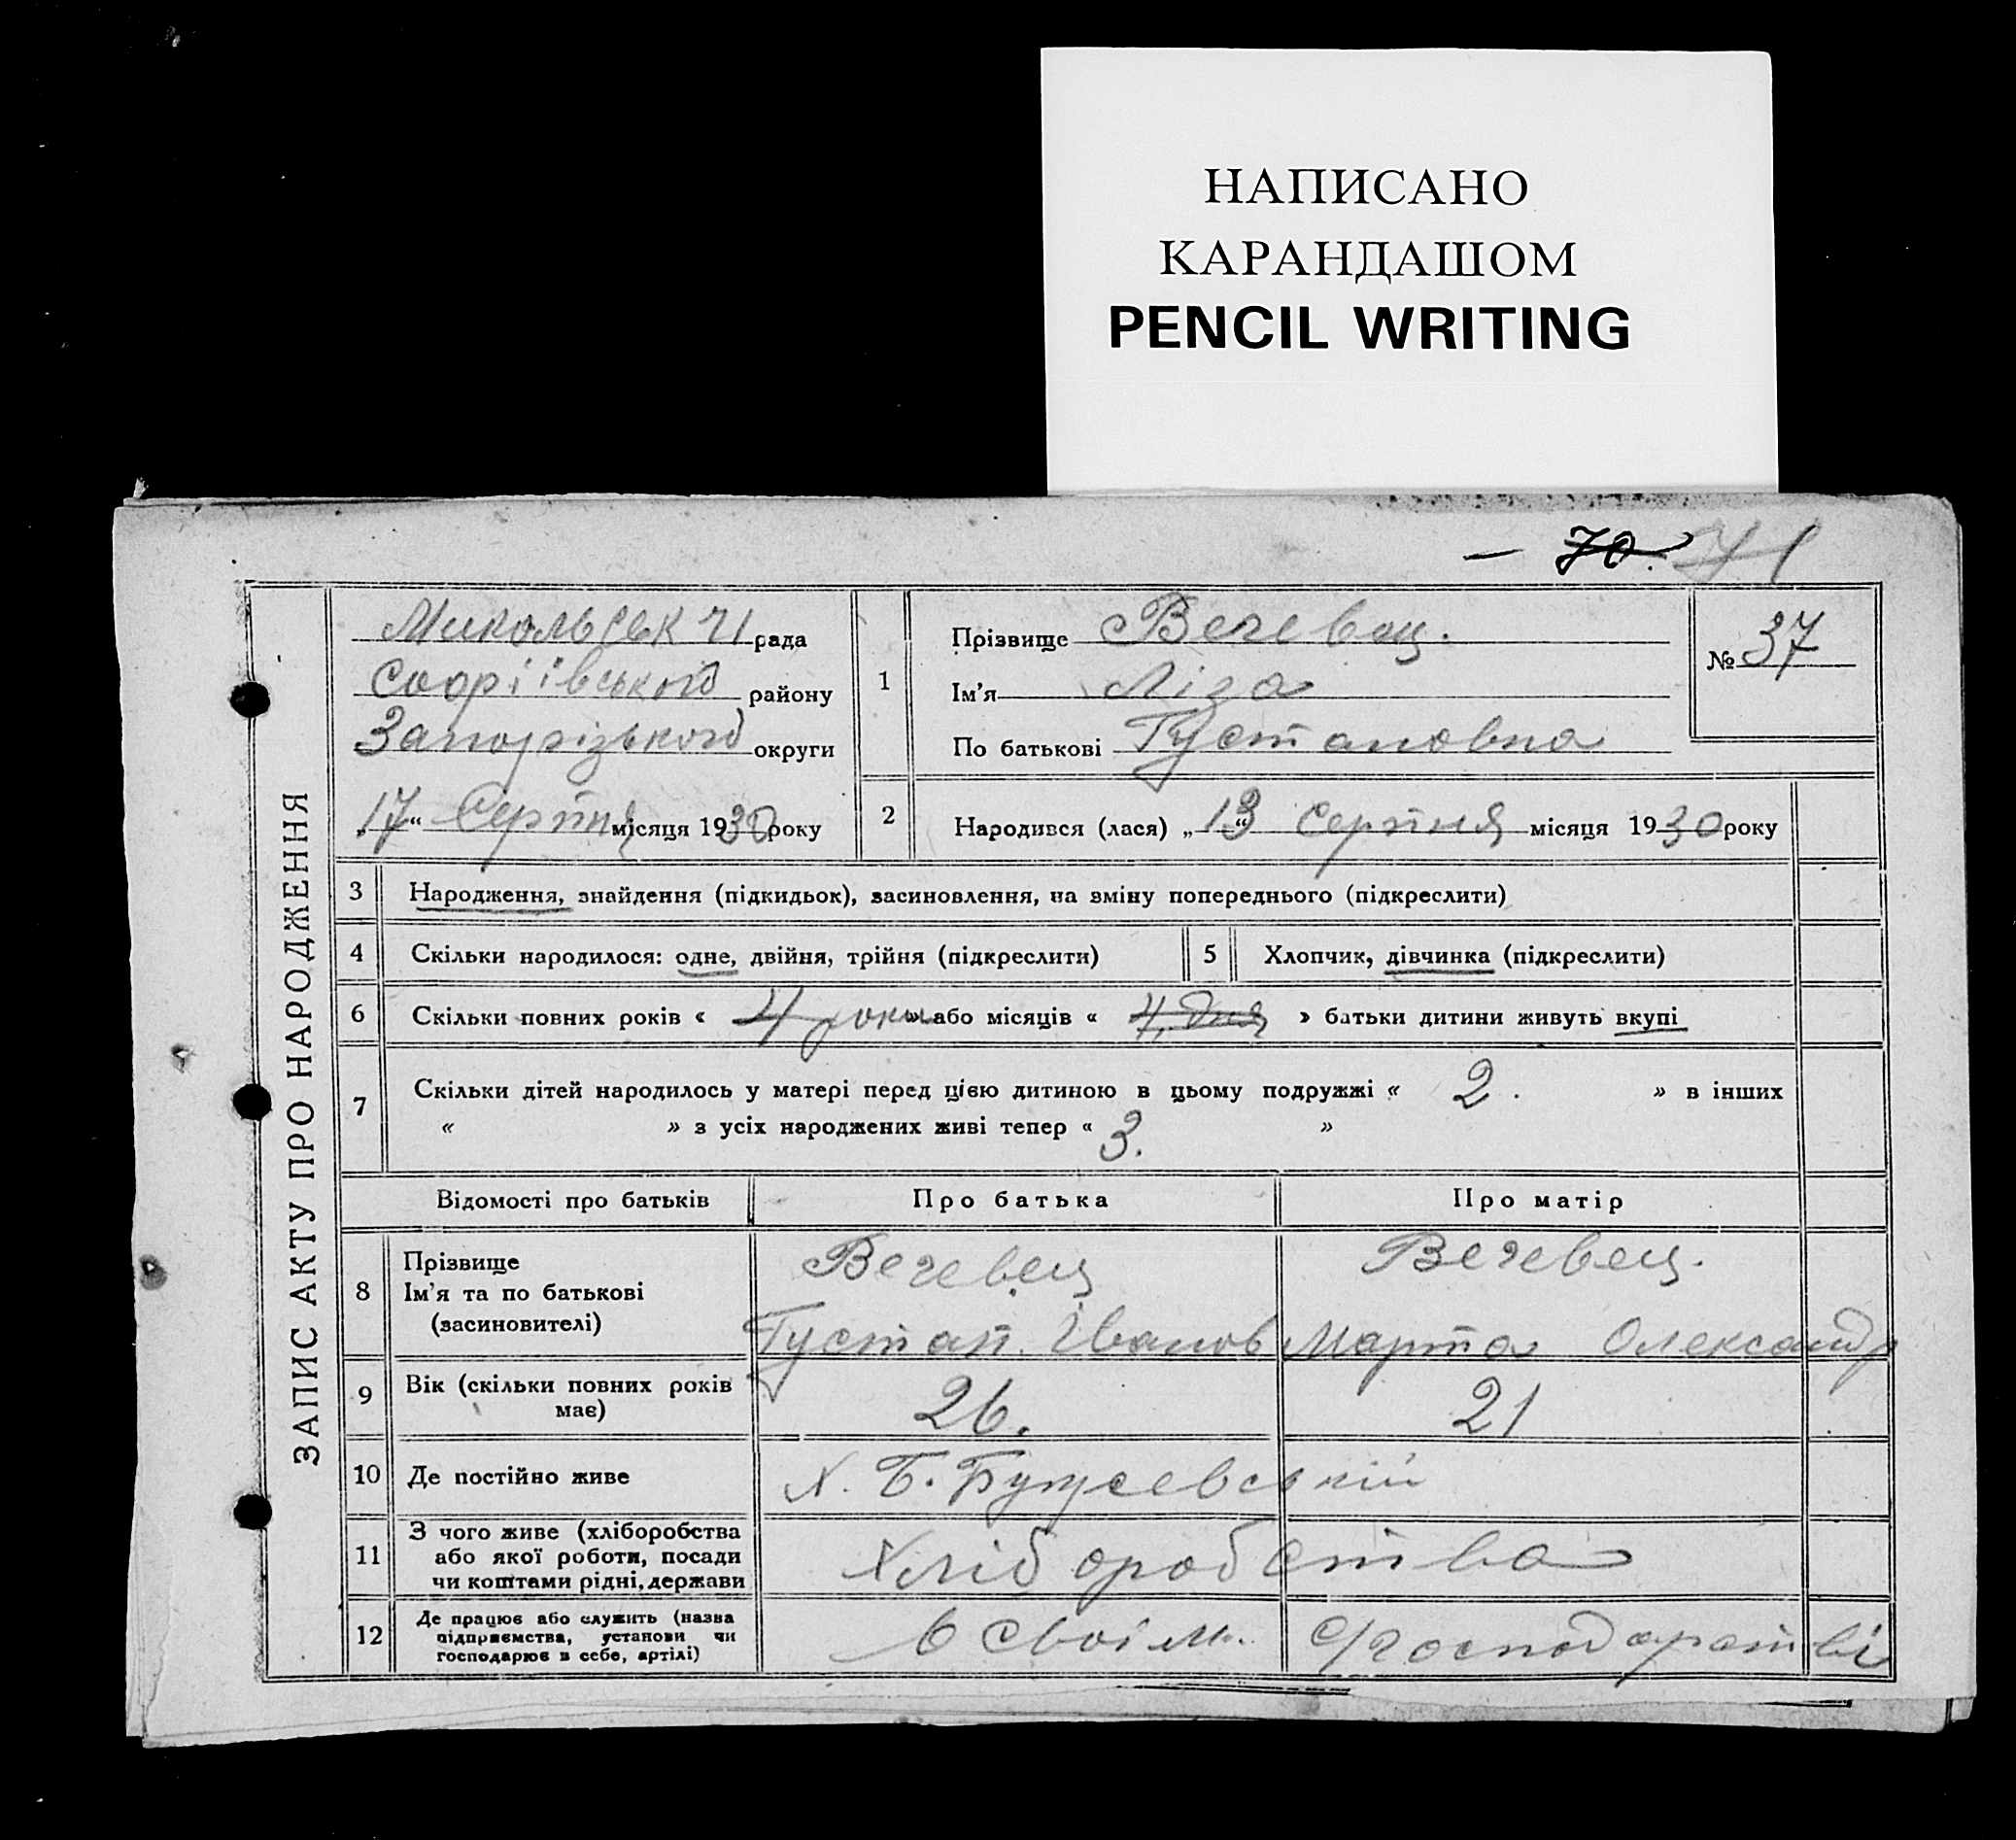 НАПИСАНО
КАРАНДАШОМ
PENCIL WRITING
— 70. 71
ЗАПИС АКТУ ПРО НАРОДЖЕННЯ
рада
району
Запорізького округи
„17“ Серпня місяця 1930 року
1
Прізвище
Ім'я Ліза
По батькові Густаповна
№ 37
2
Народився (лася) „13“ Серпня місяця 1930 року
3 Народження, знайдення (підкидьок), засиновлення, на зміну попереднього (підкреслити)
4 Скільки народилося: одне, двійня, трійня (підкреслити)
5 Хлопчик, дівчинка (підкреслити)
6 Скільки повних років « 4 роки » або місяців « 4 дня » батьки дитини живуть вкупі
7 Скільки дітей народилось у матері перед цією дитиною в цьому подружжі « 2. » в інших
« » з усіх народжених живі тепер « 3. »
Відомості про батьків Про батька Про матір
8 Прізвище
Ім'я та по батькові
(засиновителі)
Вечевец Вечевец.
Густап. Іванов Марта Олександр
9 Вік (скільки повних років
має)
26. 21
10 Де постійно живе Х. Б.
11 З чого живе (хліборобства
або якої роботи, посади
чи коштами рідні, держави
Хліборобства
12 Де працює або служить (назва
підприємства, установи чи
господарює в себе, артілі)
в своім. с/господарстві